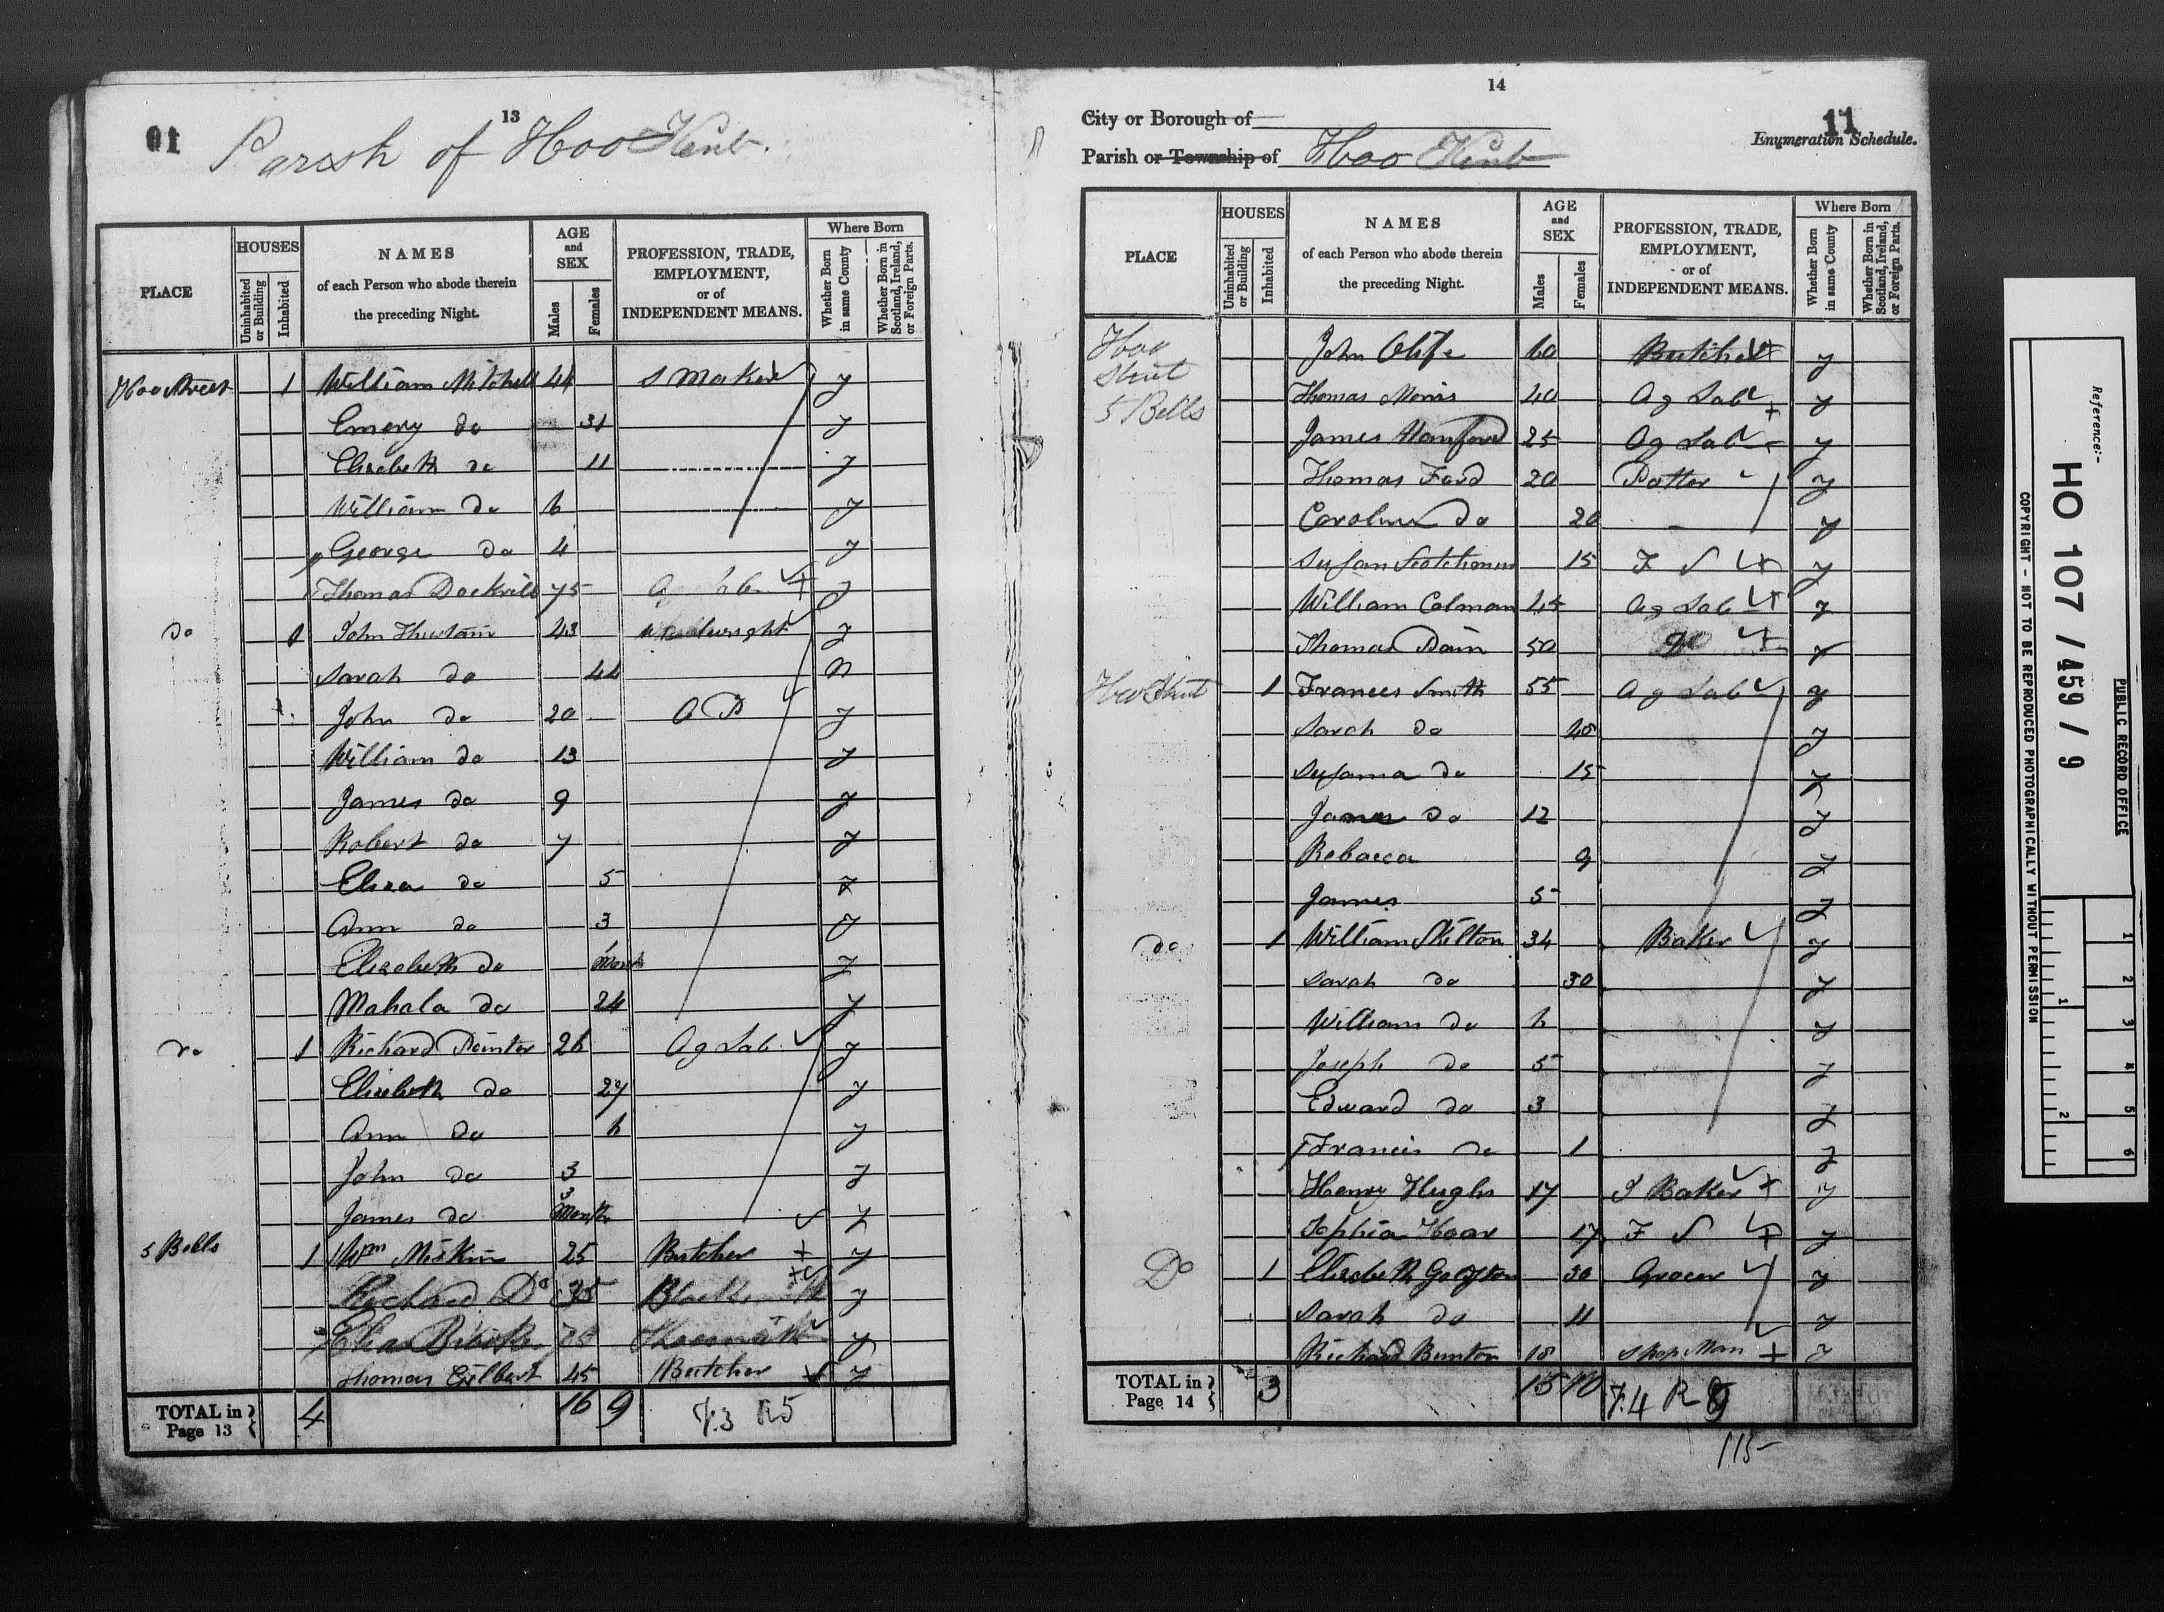 01
13
Parish of Hoo Kent.
PLACE
HOUSES
Uninhabited or Building
Inhabited
NAMES
of each Person who abode therein
the preceding Night.
AGE and SEX
Males
Females
PROFESSION, TRADE, EMPLOYMENT, or of INDEPENDENT MEANS.
Where Born
Whether Born in same County
Whether Born in Scotland, Ireland, or Foreign Parts.
Hoo Street 1 William Mitchell 44 S Maker y
Emery do 31 y
Elizabeth do 11 y
William do 6 y
George do 4 y
Thomas Dockrill 75 y
do 1 John 43 y
Sarah do 44 n
John do 20 y
William do 13 y
James do 9 y
Robert do 7 y
Eliza do 5 y
Ann do 3 y
Elizabeth do y
Mahala do 24 y
do 1 Richard Pointer 26 Ag Lab y
Elizabeth do 27 y
Ann do 6 y
John do 3 y
James do 3 Months y
5 Bells 1 Wm Miskin 25 Butcher y
Richard Do 35 Blacksmith y
y
Thomas Gilbert 45 Butcher y
TOTAL in Page 13 4 16 9 7.3 R5
14
11
City or Borough of
Enumeration Schedule.
Parish or Township of Hoo Kent
PLACE
HOUSES
Uninhabited or Building
Inhabited
NAMES
of each Person who abode therein
the preceding Night.
AGE and SEX
Males
Females
PROFESSION, TRADE, EMPLOYMENT, or of INDEPENDENT MEANS.
Where Born
Whether Born in same County
Whether Born in Scotland, Ireland, or Foreign Parts.
Hoo Street John 60 Butcher y
5 Bells Thomas Morris 40 Ag Lab y
James 25 Ag Lab y
Thomas Ford 20 Potter y
Caroline do 20 y
Susan 15 F S y
William Colman 45 Ag Lab y
Thomas 50 Do y
Hoo Street 1 Frances Smith 55 Ag Lab y
Sarah do y
Susanna do 15 y
James do 12 y
Rebacca 9 y
James 5 y
do 1 William Skilton 34 Baker y
Sarah do 30 y
William do 6 y
Joseph do 5 y
Edward do 3 y
Francis do 1 y
Henry Hughs 17 J Baker y
Sophia Hoar 17 F S y
Do 1 Elizabeth 30 Grocer y
Sarah do 11 y
Richard Bunton 18 Shop Man y
TOTAL in Page 14 3 15 10 7.4 R 9
115
Reference:-
HO 107 / 459 / 9
PUBLIC RECORD OFFICE
COPYRIGHT - NOT TO BE REPRODUCED PHOTOGRAPHICALLY WITHOUT PERMISSION
1 2 3 4 5 6
1 2